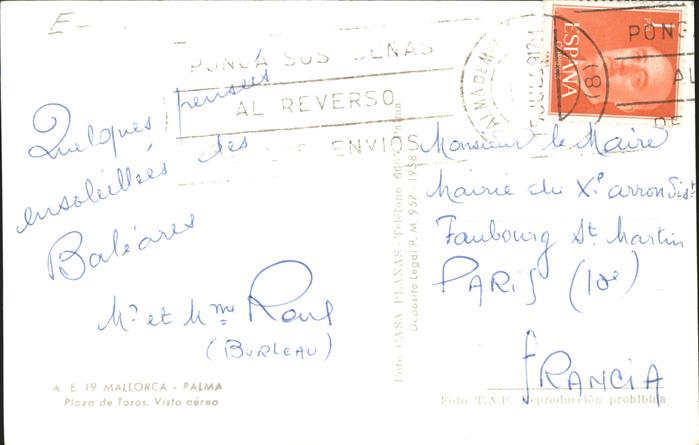 E-
Quelques pensées
ensoleillées des
Baléares
Mr et Mme Raus
(BURLEAU)
A. E. 19 MALLORCA - PALMA
Plaza de Toros. Vista aérea
PONGA SUS SEÑAS
AL REVERSO
ENVIOS
PALMA DE M
(8)
1 P
ESPAÑA
CORREOS
PONG
AL
DE
Foto CASA PLANAS - Teléfono
Depósito Legal P. M. 957 - 1958
Monsieur le Maire
Mairie du Xe arrondist
Faubourg St Martin
PARIS (10e)
FRANCIA
Foto T.A.F. Reproducción prohibida